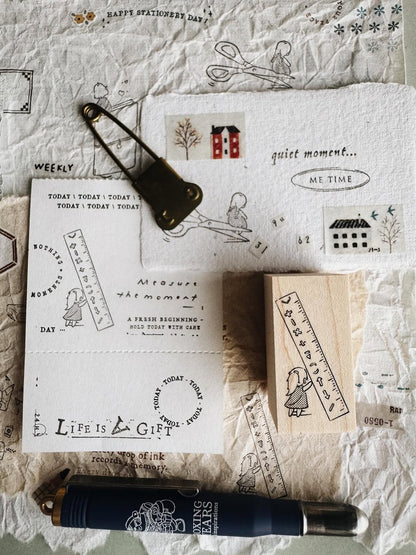 HAPPY STATIONERY DAY!
quiet moment...
ME TIME
WEEKLY
TODAY \ TODAY \ TODAY \ TODAY
TODAY \ TODAY \ TODAY
NOTHING
MOMENTS
DAY ...
Measure
the moment
A FRESH BEGINNING -
HOLD TODAY WITH CARE
TODAY · TODAY · TODAY · TODAY
LIFE IS A GIFT
drop of ink
records a memory.
inspirations